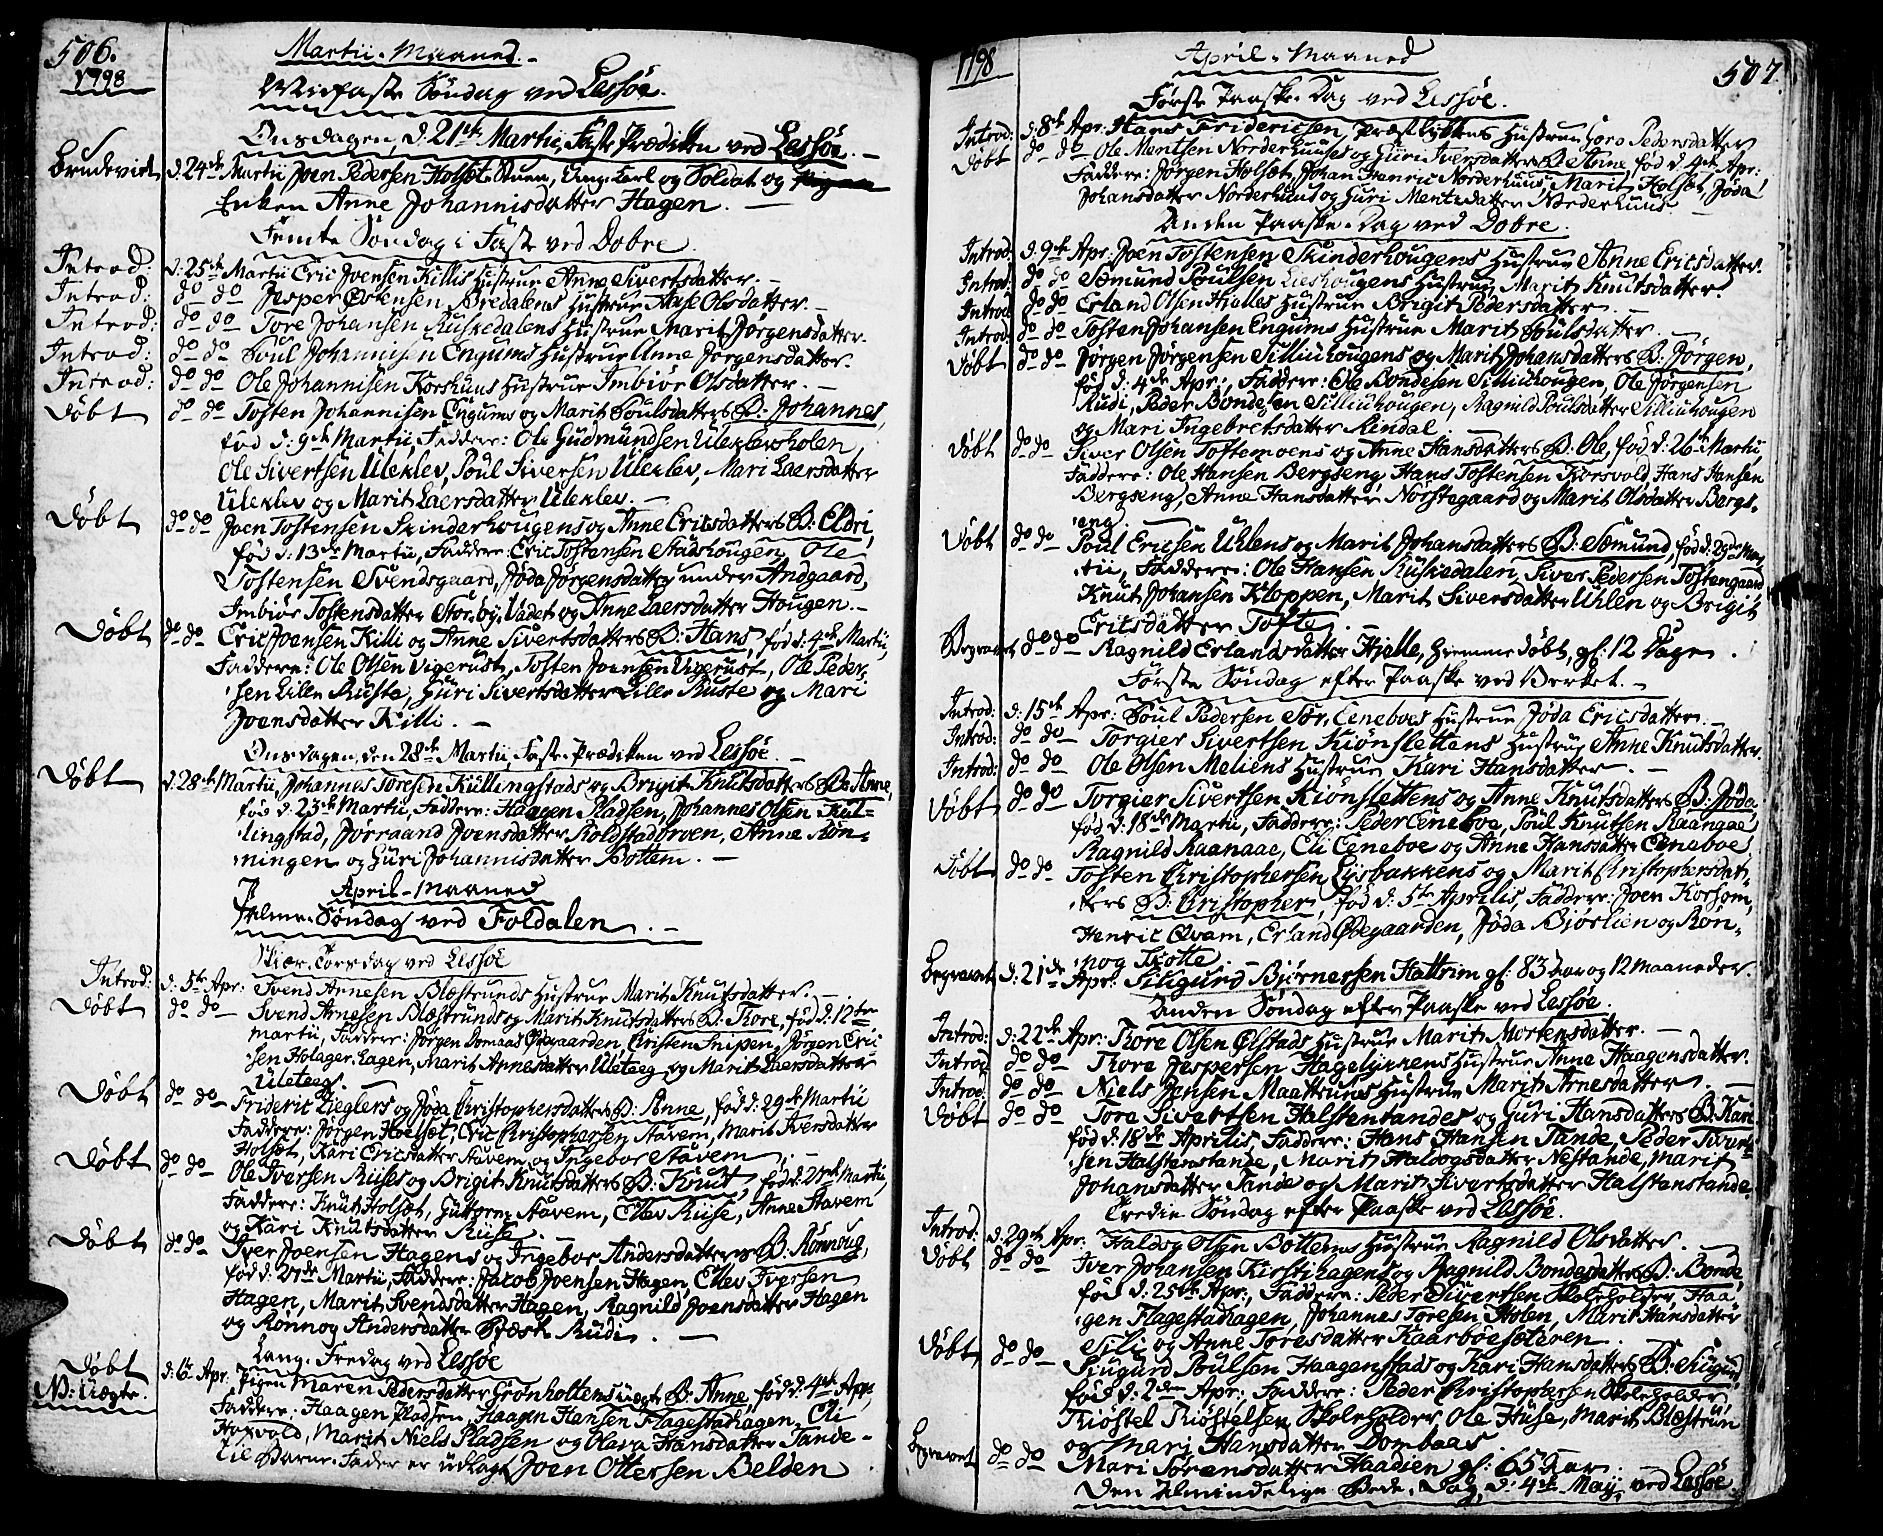 506.
1798
Martii Maaned.
Midfaste Søndag ved Lessøe.
Onsdagen, d: 21de Martii, Faste Prædiken ved Lessøe.
Brudevidt d: 24de Martii Joen Pedersen Holsæt Stuen, Ung Karl og Soldat og Pigen
Enken Anne Johannisdatter Hagen.
Femte Søndag i Faste ved Dobre.
Introd: d: 25de Martii Eric Joensen Killis Hustrue Anne Sivertsdatter.
Introd: do do Jesper Østensen Bredalens Hustrue Aase Olsdatter.
Introd: do do Tore Johansen Ruskedalens Hustrue Marit Jørgensdatter.
Introd: do do Poul Johannisen Engums Hustrue Anne Jørgensdatter.
Introd: do do Ole Johannisen Korshuus Hustrue Imbiør Olsdatter.
Døbt do do Tosten Johannisen Engums og Marit Poulsdatters B: Johannes,
fød d: 9de Martii, Faddere: Ole Gudmundsen Uleklevholen
Ole Sivertsen Uleklev, Poul Siversen Uleklev, Mari Laersdatter
Uleklev og Marit Laersdatter Uleklev.
Døbt do do Joen Tostensen Skinderhougens og Anne Ericsdatters B: Eldri,
fød d: 13de Martii, Faddere: Eric Tostensen Stadshougen, Ole
Tostensen Svendsgaard, Jøda Jørgensdatter under Andgaard,
Imbiør Tostensdatter Storøi, Vadet og Anne Laersdatter Hougen.
Døbt do do Eric Joensen Killi og Anne Sivertsdatters B: Hans, fød d: 4de Martii,
Faddere: Ole Olsen Vigerust, Tosten Joensen Vigerust, Ole Peder-
sen Lille Ruste, Guri Sivertsdatter Lille Ruste og Mari
Joensdatter Killi.
Onsdagen, den 28de Martii, Faste Prædiken ved Lessøe
Døbt d: 28de Martii, Johannes Toresen Kullingstads og Brigit Knutsdatters B: Anne,
fød d: 23de Martii, Faddere: Haagen Pladsen, Johannes Olsen Kul-
lingstad, Jørraand Joensdatter Koldstadørven, Anne Røn-
ningen og Guri Johannisdatter Bottem.
April Maaned
Palme Søndag ved Foldalen.
Skiær Torsdag ved Lessøe
Introd: d: 5te Apr: Svend Arnesen Blæstruds Hustrue Marit Knutsdatter.
Døbt do do Svend Arnesen Blæstruds og Marit Knutsdatters B: Tore, fød d: 12te
Martii, Faddere: Jørgen Domaas Øvegaarden, Christen Snipen, Jørgen Eric-
sen Holager Lagen, Marit Arnesdatter Uleteeg og Marit Laersdatter
Uleteeg.
Døbt do do Frideric Zieglers og Jøda Christophersdatters B: Anne, fød d: 29de Martii
Faddere: Jørgen Holsæt, Eric Christophersen Stavem, Marit Iversdatter
Holsæt, Kari Ericsdatter Stavem og Ingebor Stavem.
Døbt do do Ole Iversen Ruises og Brigit Knutsdatters B: Knut, fød d: 21de Martii,
Faddere: Knut Holsæt, Guttorm Stavem, Ellev Ruise, Anne Stavem
og Kari Knutsdatter Ruise.
Døbt do do Iver Joensen Hagens og Ingebor Andersdatters B: Rønnoug,
fød d: 27de Martii, Faddere: Jacob Joensen Hagen, Ellev Iversen
Hagen, Marit Svendsdatter Hagen, Ragnild Joensdatter Hagen
og Rønnog Andersdatter Bæsk Rudi.
Lang Fredag ved Lessøe
Døbt d: 6te Apr: Pigen Maren Pedersdatter Grønholtens uægte B: Anne, fød d: 4de Apr:
N: Uægte.
Faddere: Haagen Pladsen, Haagen Hansen Flagestadhagen, Eli
Horvold, Marit Niels Pladsen og Olava Hansdatter Tande.
Til Barne-Fader er udlagt Joen Ottersen Belden
1798
507.
April Maaned
Første Paaske-Dag ved Lessøe.
Introd: d: 8de Apr: Hans Fridericsen, Præstløkkens Hustrue Goro Pedersdatter
Døbt do do Ole Mentsen Norderhuuses og Guri Iversdatters B: Anne, fød d: 4de Apr:
Faddere: Jørgen Holsæt, Johan Henric Norderhuus, Marit Holsæt, Jøda
Johansdatter Norderhuus og Guri Mentsdatter Norderhuus.
Anden Paaske-Dag ved Dobre.
Introd: d: 9de Apr: Joen Tostensen Skinderhougens Hustrue Anne Ericsdatter.
Introd: do do Æmund Poulsen Lieshougens Hustrue Marit Knutsdatter.
Introd: do do Erland Olsen Hielles Hustrue Brigit Pedersdatter.
Introd: do do Tosten Johansen Engums Hustrue Marit Poulsdatter.
Døbt do do Jørgen Jørgensen Silliuhougens og Marit Johansdatters B: Jørgen,
fød d: 4de Apr:, Faddere: Ole Bondesen Silliuhougen, Ole Jørgensen
Rudi, Peder Bondesen Silliuhougen, Ragnild Poulsdatter Silliuhougen
og Mari Ingebretsdatter Rindal.
Døbt do do Siver Olsen Toftemoens og Anne Hansdatters B: Ole, fød d: 26de Martii,
Faddere: Ole Hansen Bergseng, Hans Tostensen Korsvold, Hans Hansen
Bergseng, Anne Hansdatter Norstegaard og Marit Olsdatter Bergs-
eng.
Døbt do do Poul Ericsen Uhlens og Marit Johansdatters B: Æmund, fød d: 29de Mar-
tii, Faddere: Ole Hansen Ruskedalen, Siver Pedersen Toftengaard
Knut Johansen Kloppen, Marit Siversdatter Uhlen og Brigit
Ericsdatter Tofte.
Begravet do do Ragnild Erlandsdatter Hjelle, Hiemmedøbt, gl: 12 Dage.
Første Søndag efter Paaske ved Verket.
Introd: d: 15de Apr: Poul Pedersen Sør Eneboes Hustrue Jøda Ericsdatter.
Introd: do do Torgier Sivertsen Kiønslettens Hustrue Anne Knutsdatter.
Introd: do do Ole Olsen Meliens Hustrue Kari Hansdatter.
Døbt do do Torgier Sivertsen Kiønslettens og Anne Knutsdatters B: Jøda,
fød d: 18de Martii, Faddere: Peder Eneboe, Poul Knutsen Raanaae,
Ragnild Raanaae, Eli Eneboe og Anne Hansdatter Eneboe
Døbt do do Tosten Christophersen Lysbakkens og Marit Christophersdat-
ters B: Christopher, fød d: 5te Aprilis, Faddere: Joen Korsom,
Henric Qvam, Erland Øvegaarden, Jøda Bjørlien og Røn-
nog Trotte.
Begravet d: 21de Apr: Siugurd Bjørnersen Hattrim gl: 83 Aar og 12 Maaneder.
Anden Søndag efter Paaske ved Lessøe.
Introd: d: 22de Apr: Tore Olsen Ølstads Hustrue Marit Mortensdatter.
Introd: do do Tore Jespersen Hageløkkens Hustrue Anne Haagensdatter.
Introd: do do Niels Jensen Maattruns Hustrue Marit Arnesdatter.
Døbt do do Tore Sivertsen Halstenstandes og Guri Hansdatters B: Kari
fød d: 18de Aprilis, Faddere: Hans Hansen Tande, Peder Sivert-
sen Halstenstande, Marit Haldogsdatter Nestande, Marit
Johansdatter Tande og Marit Sivertsdatter Halstenstande.
Tredie Søndag efter Paaske ved Lessøe.
Introd: d: 29de Apr: Haldog Olsen Bottems Hustrue Ragnild Olsdatter.
Døbt do do Iver Johansen Kirstihagens og Ragnild Bondesdatters B: Bonde,
fød d: 25de Apr:, Faddere: Peder Sivertsen Skoleholder, Haa-
gen Flagestadhagen, Johannes Toresen Holen, Marit Hansdatter
Sili og Anne Toresdatter Kaarbøesæteren.
Døbt do do Siugurd Poulsen Haagenstads og Kari Hansdatters B: Siugurd,
fød d: 2den Apr:, Faddere: Peder Christophersen Skoleholder,
Kiøstel Kiøstelsen, Skoleholder, Ole Huse, Marit Blæstrun
og Mari Hansdatter Dombaas.
Begravet do do Mari Sørensdatter Haadien gl: 65 Aar.
Den Almindelige Bede-Dag, d: 4de May, ved Lessøe.